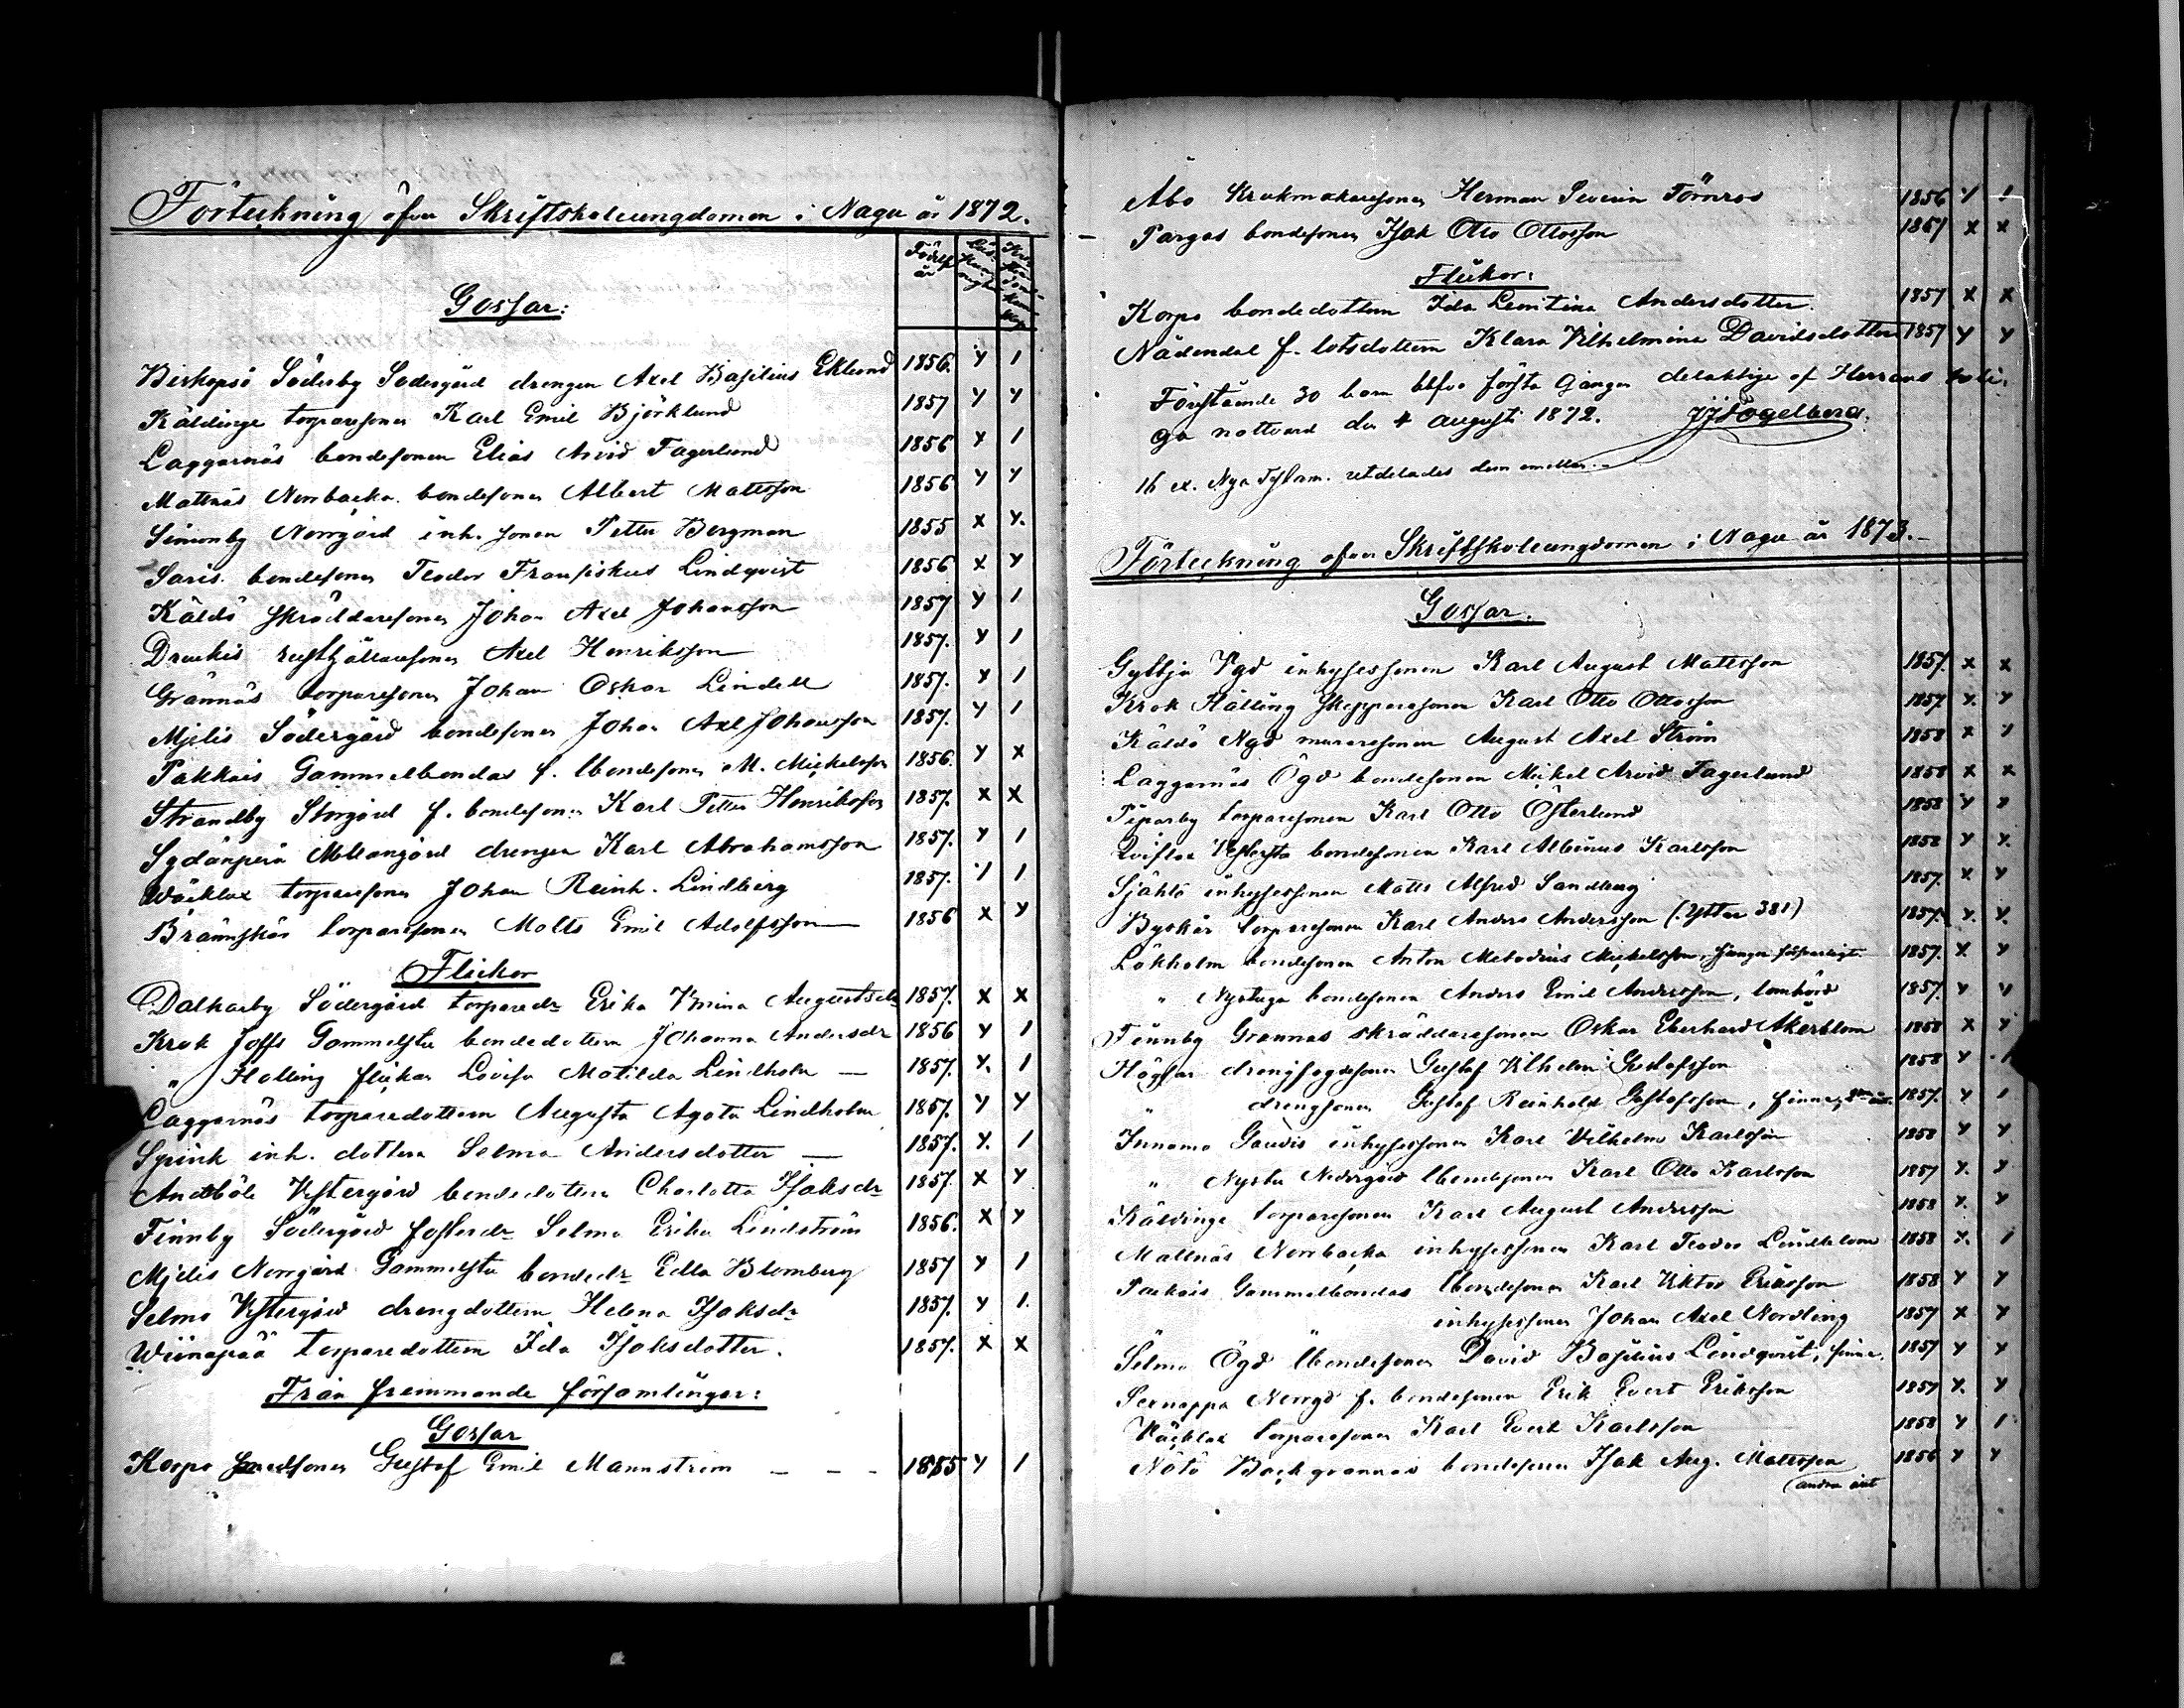 Förteckning öfver Skriftskoleungdomen i Nagu år 1872.
Födelse år
Gossar:
Biskopsö Söderby Södergård drengen Axel Basilius Eklund 1856. y 1
Käldinge torparesonen Karl Emil Björklund 1857 y y
Laggarnäs bondesonen Elias Arvid Fagerlund 1856 y 1
Mattnäs Norrbacka bondesonen Albert Mattsson 1856 y y
Simonby Norrgård inh. sonen Petter Bergman 1855 x y.
Saris bondesonen Teodor Fransiskus Lindqvist 1856 x y
Käldö skräddaresonen Johan Axel Johansson 1857 y 1
Druckis rusthållaresonen Axel Henriksson 1857. y 1
Grännäs torparesonen Johan Oskar Lindell 1857. y 1
Mjelis Södergård bondesonen Johan Axel Johansson 1857. y 1
Pakkais Gammelbondas f. lbondesonen M. Mickelsson 1856. y x
Strandby Storgård f. bondesonen Karl Petter Henriksson 1857. x x
Sydänperä Mellangård drengen Karl Abrahamsson 1857. y 1
Wäcklax torparesonen Johan Reinh. Lindberg 1857. 1 1
Brännskär torparesonen Matts Emil Adolfsson 1856 x y
Flickor
Dalkarby Södergård torparedr Erika Vmina Augustsdr 1857. x x
Krok Joffs Gammelstu bondedottern Johanna Andersdr 1856 y 1
" Hälling flickan Lovisa Matilda Lindholm — 1857. y. 1
Laggarnäs torparedottern Augusta Agata Lindholm 1857. y y
Spink inh. dottern Selma Andersdotter — 1857. y. 1
Andböle Vestergård bondedottern Charlotta Isaksdr 1857. x y
Finnby Södergård fosterdr Selma Erika Lindström 1856. x y
Mjelis Norrgård Gammelstu bondedr Edla Blomberg 1857 y 1
Selmo Vestergård drengdottern Helena Isaksdr 1857. y 1.
Wiinapää torparedottern Ida Isaksdotter. 1857. x x
Från fremmande församlingar:
Gossar
Korpo sonen Gustaf Emil Mannström — — — 1855 y 1
Åbo Krukmakaresonen Herman Severin Törnros 1856 y 1
Pargas bondesonen Isak Otto Ottosson 1857 x x
Flickor:
Korpo bondedottern Ida Leontina Andersdotter. 1857 x x
Nådendal f. lotsdottern Klara Vilhelmina Davidsdotter 1857 y y
Förestående 30 barn blefvo första gången delaktige af Herrans heli-
ga nattvard den 4 augusti 1872. JJFogelberg.
16 ex. Nya Testam. utdelades dem emellan.
Förteckning öfver Skriftskoleungdomen i Nagu år 1873.
Gossar.
Gyttja Vgd inhysessonen Karl August Mattsson 1857. x x
Krok Hälling skepparesonen Karl Otto Ottosson 1857 y. y
Käldö Ngd muraresonen August Axel Ström 1858 x y
Laggarnäs Ögd bondesonen Mickel Arvid Fagerlund 1858 x x
Piparby torparesonen Karl Otto Österlund 1858 y y
Qviflax bondesonen Karl Albinus Karlsson 1858 y y.
Själö inhysessonen Matts Alfred Sandberg 1857. x y
Byskär torparesonen Karl Anders Andersson (Ytter 381) 1857. y. y.
Lökholm bondesonen Anton Metodius Mickelsson, 1857. x y
" Nystuga bondesonen Anders Emil Andersson, lomhörd 1857. y y
Finnby Grannas skräddaresonen Oskar Eberhard Åkerblom 1858 x y
Högsar drengsonen Gustaf Vilhelm Gustafsson 1858 y 1
" drengsonen Gustaf Reinhold Gustafsson, 1857. y 1
Innamo Gaudis inhysessonen Karl Vilhelm Karlsson 1858 y y
" Nystu Nedergård lbondesonen Karl Otto Karlsson 1857 y. y
Käldinge torparesonen Karl August Andersson 1858 y. y
Mattnäs Norrbacka inhysessonen Karl Teodor Lindblom 1858 y. 1
Packais Gammelbondas lbondesonen Karl Viktor Eriksson 1858 y y
" inhysessonen Johan Axel Nordling 1857 x y
Selmo Ögd lbondesonen David Basilius Lindqvist, 1857 y y
Sexnappa Norrgd f. bondesonen Erik Evert Eriksson 1857 y. y
Väcklax torparesonen Karl Evert Karlsson 1858 y 1
Nötö Backgrannas bondesonen Isak Aug. Mattsson 1856 y y
(andra året